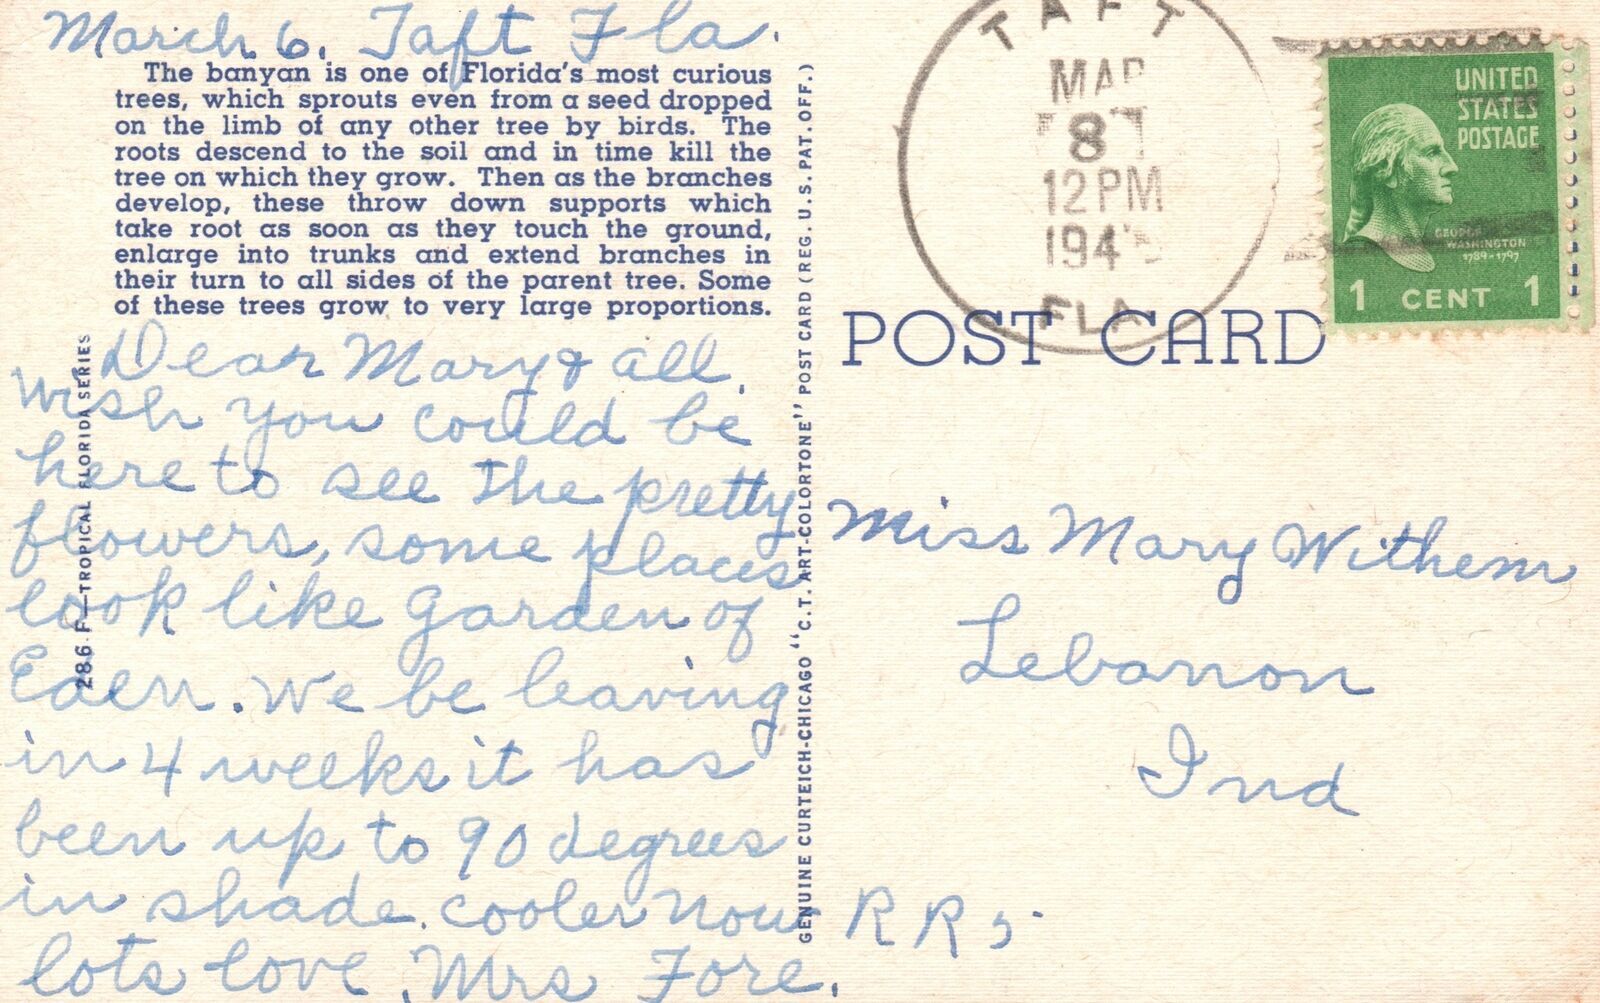 March 6. Taft Fla.
The banyan is one of Florida's most curious
trees, which sprouts even from a seed dropped
on the limb of any other tree by birds. The
roots descend to the soil and in time kill the
tree on which they grow. Then as the branches
develop, these throw down supports which
take root as soon as they touch the ground,
enlarge into trunks and extend branches in
their turn to all sides of the parent tree. Some
of these trees grow to very large proportions.
Dear Mary & all.
wish you could be
here to see the pretty
flowers, some places
look like Garden of
Eden. We be leaving
in 4 weeks it has
been up to 90 degrees
in shade. cooler now
lots love. Mrs Fore.
286 F—TROPICAL FLORIDA SERIES
GENUINE CURTEICH-CHICAGO "C.T. ART-COLORTONE" POST CARD (REG. U.S. PAT. OFF.)
TAFT
MAR
8
12 PM
FLA
UNITED
STATES
POSTAGE
GEORGE
WASHINGTON
1789-1797
1 CENT 1
POST CARD
Miss Mary Withem
Lebanon
Ind
R R 5